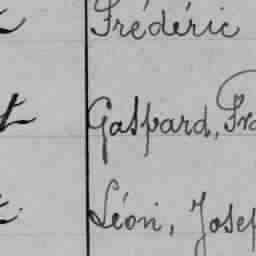 Frédéric
Gaspard, Fra
Léon, Josep